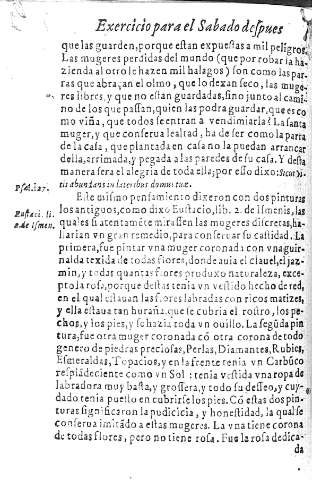 Exercicio para el Sabado despues
que las guarden, porque estan expuestas a mil peligros.
Las mugeres perdidas del mundo (que por robar la ha-
zienda al otro le hazen mil halagos) son como las par-
ras que abraçan el olmo, que lo dexan seco, las muge-
res libres, y que no estan guardadas, sino junto al cami-
no de los que passan, quien las podra guardar, que es co
mo viña, que todos se entran a vendimiarla? La santa
muger, y que conserua lealtad, ha de ser como la parra
de la casa, que plantada en casa no la puedan arrancar
della, arrimada, y pegada a las paredes de su casa. Y desta
manera sera el alegria de toda ella; por esso dixo: Sicut vi-
Psal. 127. tis abundans in lateribus domus tuæ.
Este mismo pensamiento dixeron con dos pinturas
Eustaci. li. los antiguos, como dixo Eustacio, lib. 2. de Ismenis, las
2. de Ismen. quales si atentamẽte mirassen las mugeres discretas, ha-
ziarian vn gran remedio, para conseruar su castidad. La
primera, fue pintar vna muger coronada con vna guir-
nalda texida de todas flores, donde auia el clauel, el jaz-
min, y todas quantas flores produxo naturaleza, exce-
pto la rosa, porque destas tenia vn vestido hecho de red,
en el qual estauan las flores labradas con ricos matizes,
y ella estaua tan huraña, que se cubria el rostro, los pe-
chos, y los pies, y se hazia toda vn ouillo. La segũda pin
tura, fue otra muger coronada cõ otra corona de todo
genero de piedras preciosas, Perlas, Diamantes, Rubies,
Esmeraldas, Topacios, y en la frente tenia vn Carbũco
resplãdeciente como vn Sol: tenia vestida vna ropa de
labradora muy basta, y grossera, y todo su desseo, y cuy-
dado tenia puesto en cubrirse los pies. Cõ estas dos pin-
turas significaron la pudicicia, y honestidad, la qual se
conserua imitãdo a estas mugeres. La vna tiene corona
de todas flores, pero no tiene rosa. Fue la rosa dedica-
da